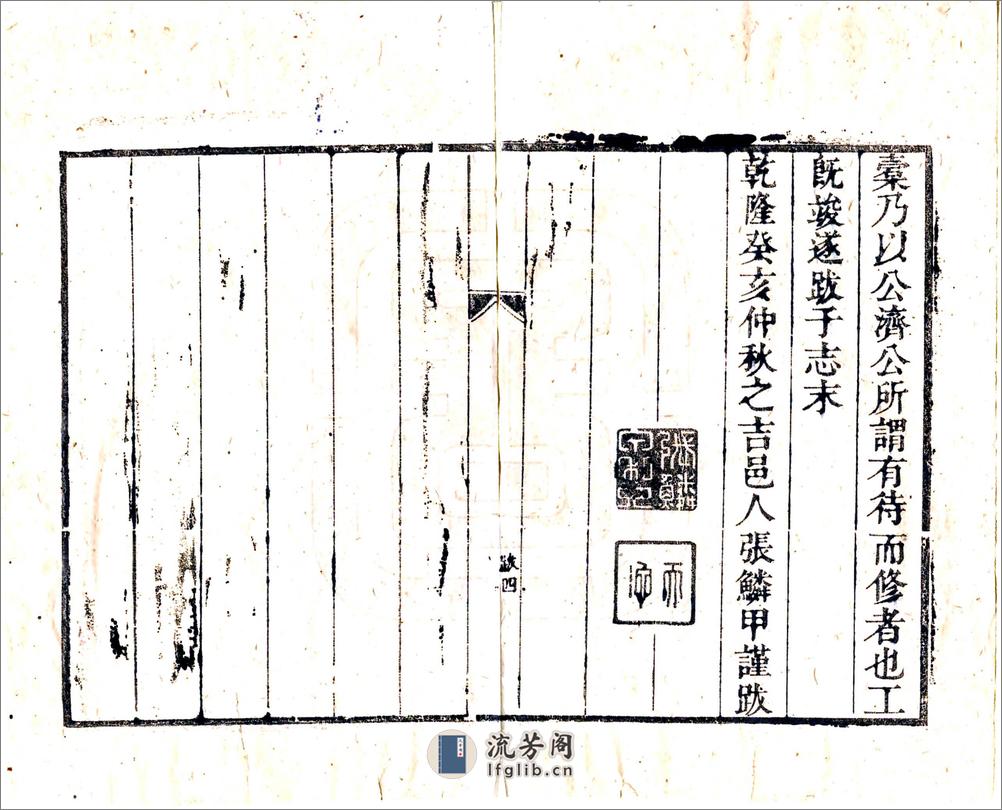 槀乃以公濟公所謂有待而修者也工
旣竣遂跋于志末
乾隆癸亥仲秋之吉邑人張鱗甲謹跋
跋四
流芳阁
lfglib.cn